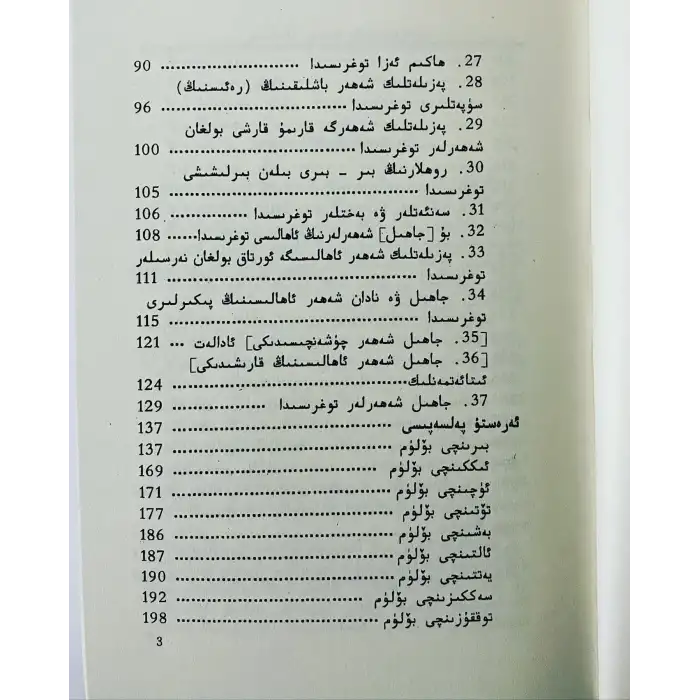 27. ھاكىم ئەزا توغرىسىدا ............................ 90
28. پەزىلەتلىك شەھەر باشلىقىنىڭ (رەئىسنىڭ)
سۈپەتلىرى توغرىسىدا .................................. 96
29. پەزىلەتلىك شەھەرگە قارىمۇ قارشى بولغان
شەھەرلەر توغرىسىدا .................................. 100
30. روھلارنىڭ بىر - بىرى بىلەن بىرلىشىشى
توغرىسىدا ............................................. 105
31. سەنئەتلەر ۋە بەختلەر توغرىسىدا .............. 106
32. بۇ [جاھىل] شەھەرلەرنىڭ ئاھالىسى توغرىسىدا...... 108
33. پەزىلەتلىك شەھەر ئاھالىسىگە ئورتاق بولغان نەرسىلەر
توغرىسىدا ............................................. 111
34. جاھىل ۋە نادان شەھەر ئاھالىسىنىڭ پىكىرلىرى
توغرىسىدا ............................................. 115
[35. جاھىل شەھەر چۈشەنچىسىدىكى] ئادالەت ... 121
[36. جاھىل شەھەر ئاھالىسىنىڭ قارىشىدىكى]
ئىتائەتمەنلىك.......................................... 124
37. جاھىل شەھەرلەر توغرىسىدا .................. 129
ئەرەستۇ پەلسەپىسى ..................................... 137
بىرىنچى بۆلۈم .......................................... 137
ئىككىنچى بۆلۈم ....................................... 169
ئۈچىنچى بۆلۈم ......................................... 171
تۆتىنچى بۆلۈم .......................................... 177
بەشىنچى بۆلۈم ......................................... 186
ئالتىنچى بۆلۈم ......................................... 187
يەتتىنچى بۆلۈم ......................................... 190
سەككىزىنچى بۆلۈم .................................... 192
توققۇزىنچى بۆلۈم ..................................... 198
3